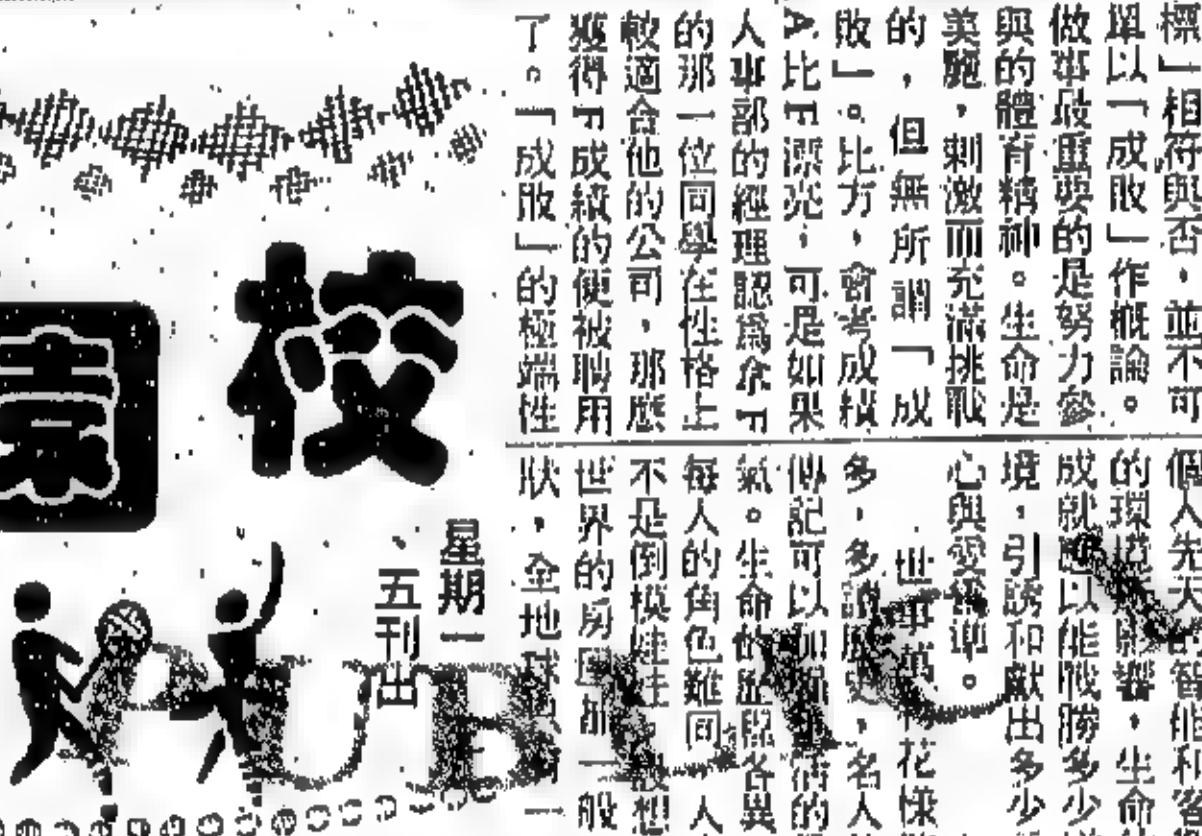 標」相符與否，並不可
單以「成敗」作概論。
做事最重要的是努力參
與的體育精神。生命是
美麗，刺激而充滿挑戰
的，但無所謂「成
敗」。比方，會考成績
A比F漂亮，可是如果
人事部的經理認爲拿F
的那一位同學在性格上
較適合他的公司，那應
獲得F成績的便被聘用
了。「成敗」的極端性
個人先天的智能和客
的環境影響，生命
成就 以能戰勝多少
境，引誘和獻出多少
心與愛爲準。
世事 花樣
多，多讀歷史，名人
傳記可以 的
氣。生命的 各異
每人的角色難同 人
不是倒模娃娃 想
世界的房 那一般
狀，全地球 一
校園
星期一
、五刊出